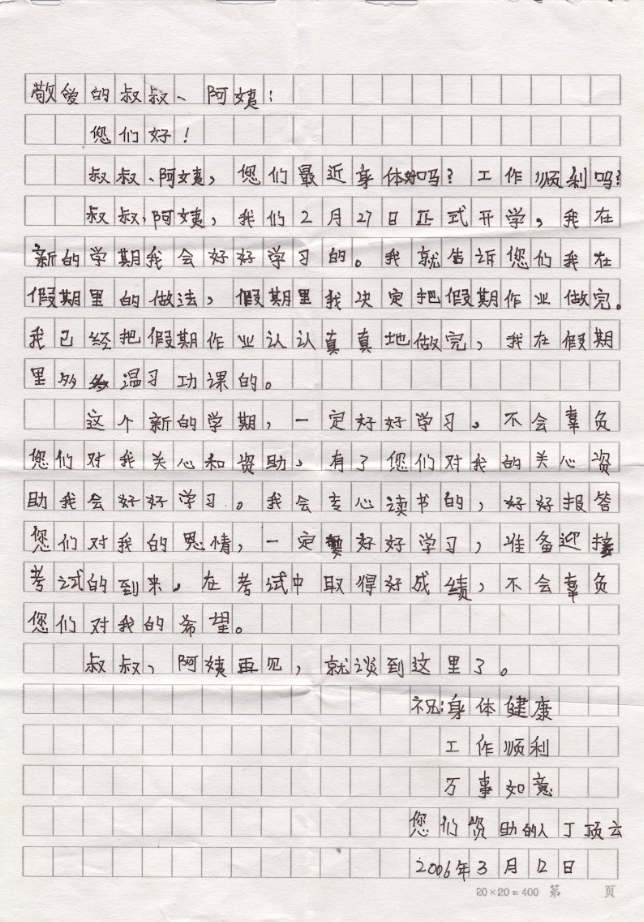 敬爱的叔叔、阿姨：
您们好！
叔叔、阿姨，您们最近身体好吗？工作顺利吗？
叔叔，阿姨，我们2月27日正式开学，我在
新的学期我会好好学习的。我就告诉您们我在
假期里的做法，假期里我决定把假期作业做完。
我已经把假期作业认认真真地做完，我在假期
里 温习功课的。
这个新的学期，一定好好学习，不会辜负
您们对我关心和资助，有了您们对我的关心资
助我会好好学习。我会专心读书的，好好报答
您们对我的恩情，一定 好好学习，准备迎接
考试的到来，在考试中取得好成绩，不会辜负
您们对我的希望。
叔叔、阿姨再见，就谈到这里了。
祝：身体健康
工作顺利
万事如意
您们资助的人丁顶云
2006年3月12日
20×20=400 第 页